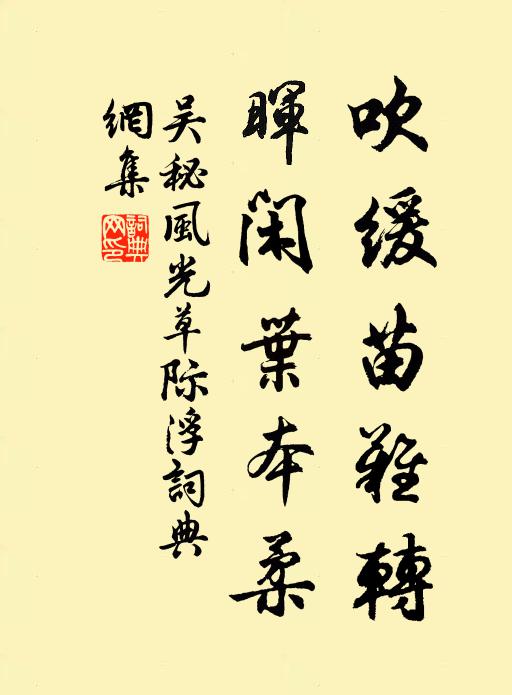 吹緩苗難轉
暉閑葉本柔
吴秘風光草際浮詞典
網集
詞典
网印